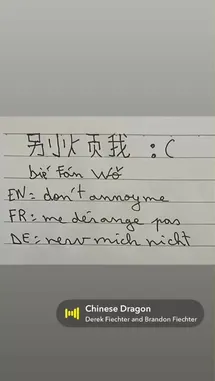 别烦我 :(
bié Fán Wǒ
EN = don't annoy me
FR = me dérange pas
DE = nerv mich nicht
Chinese Dragon
Derek Fiechter and Brandon Fiechter